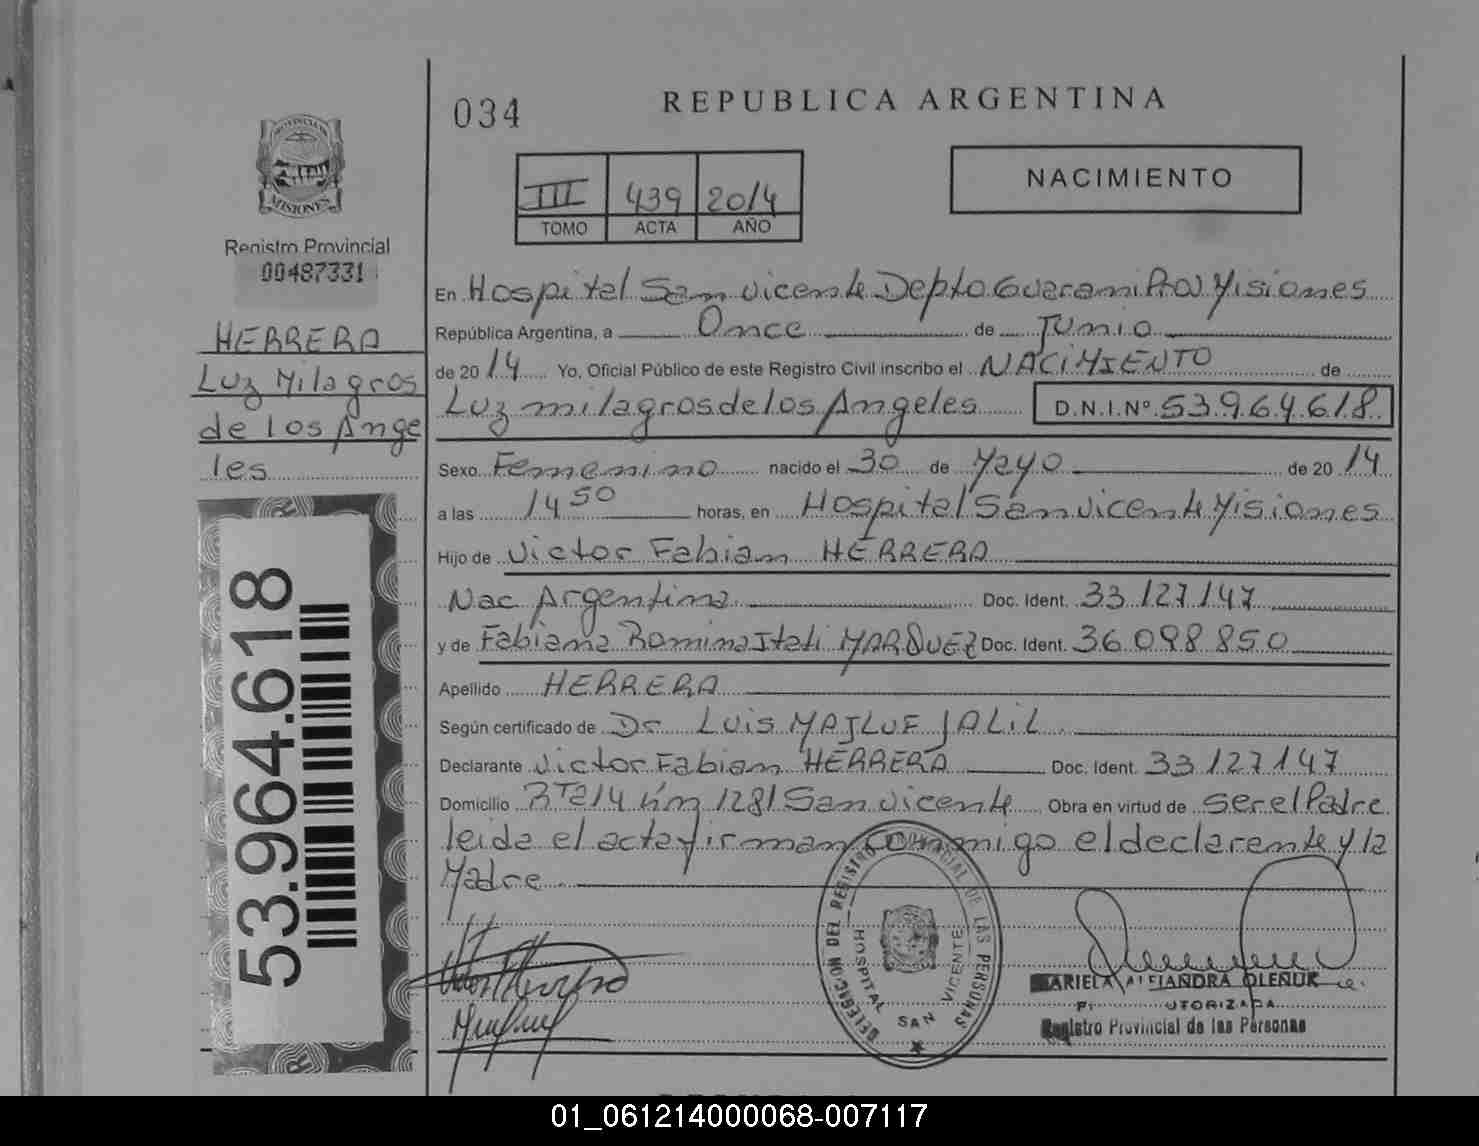 034
REPUBLICA ARGENTINA
PROVINCIA DE
MISIONES
Registro Provincial
00487331
III 439 2014
TOMO ACTA AÑO
NACIMIENTO
HERRERA
Luz Milagros
de los Ange
les
53.964.618
En Hospital San Vicente Depto Guarani Misiones
República Argentina, a Once de Junio
de 2014 Yo, Oficial Público de este Registro Civil inscribo el NACIMIENTO de
Luz milagros de los Angeles D.N.I.Nº 53.964.618
Sexo Femenino nacido el 30 de Mayo de 2014
a las 14 50 horas, en Hospital San Vicente Misiones
Hijo de Victor Fabian HERRERA
Nac Argentina Doc. Ident. 33127147
y de Fabiana Romina Itati MARQUEZ Doc. Ident. 36098850
Apellido HERRERA
Según certificado de Dr LUIS MAJLUF JALIL
Declarante Victor Fabian HERRERA Doc. Ident. 33127147
Domicilio Rta 14 km 1281 San Vicente Obra en virtud de ser el Padre
leida el acta firman conmigo el declarante y la
Madre
DELEGACION DEL REGISTRO PROVINCIAL DE LAS PERSONAS
HOSPITAL SAN VICENTE
MARIELA ALEJANDRA OLENUK
Registro Provincial de las Personas
01_061214000068-007117